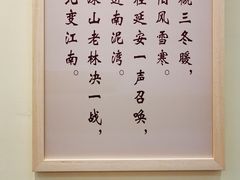 三冬暖，
风雪寒。
延安一声召唤，
南泥湾。
山老林决一战，
变江南。